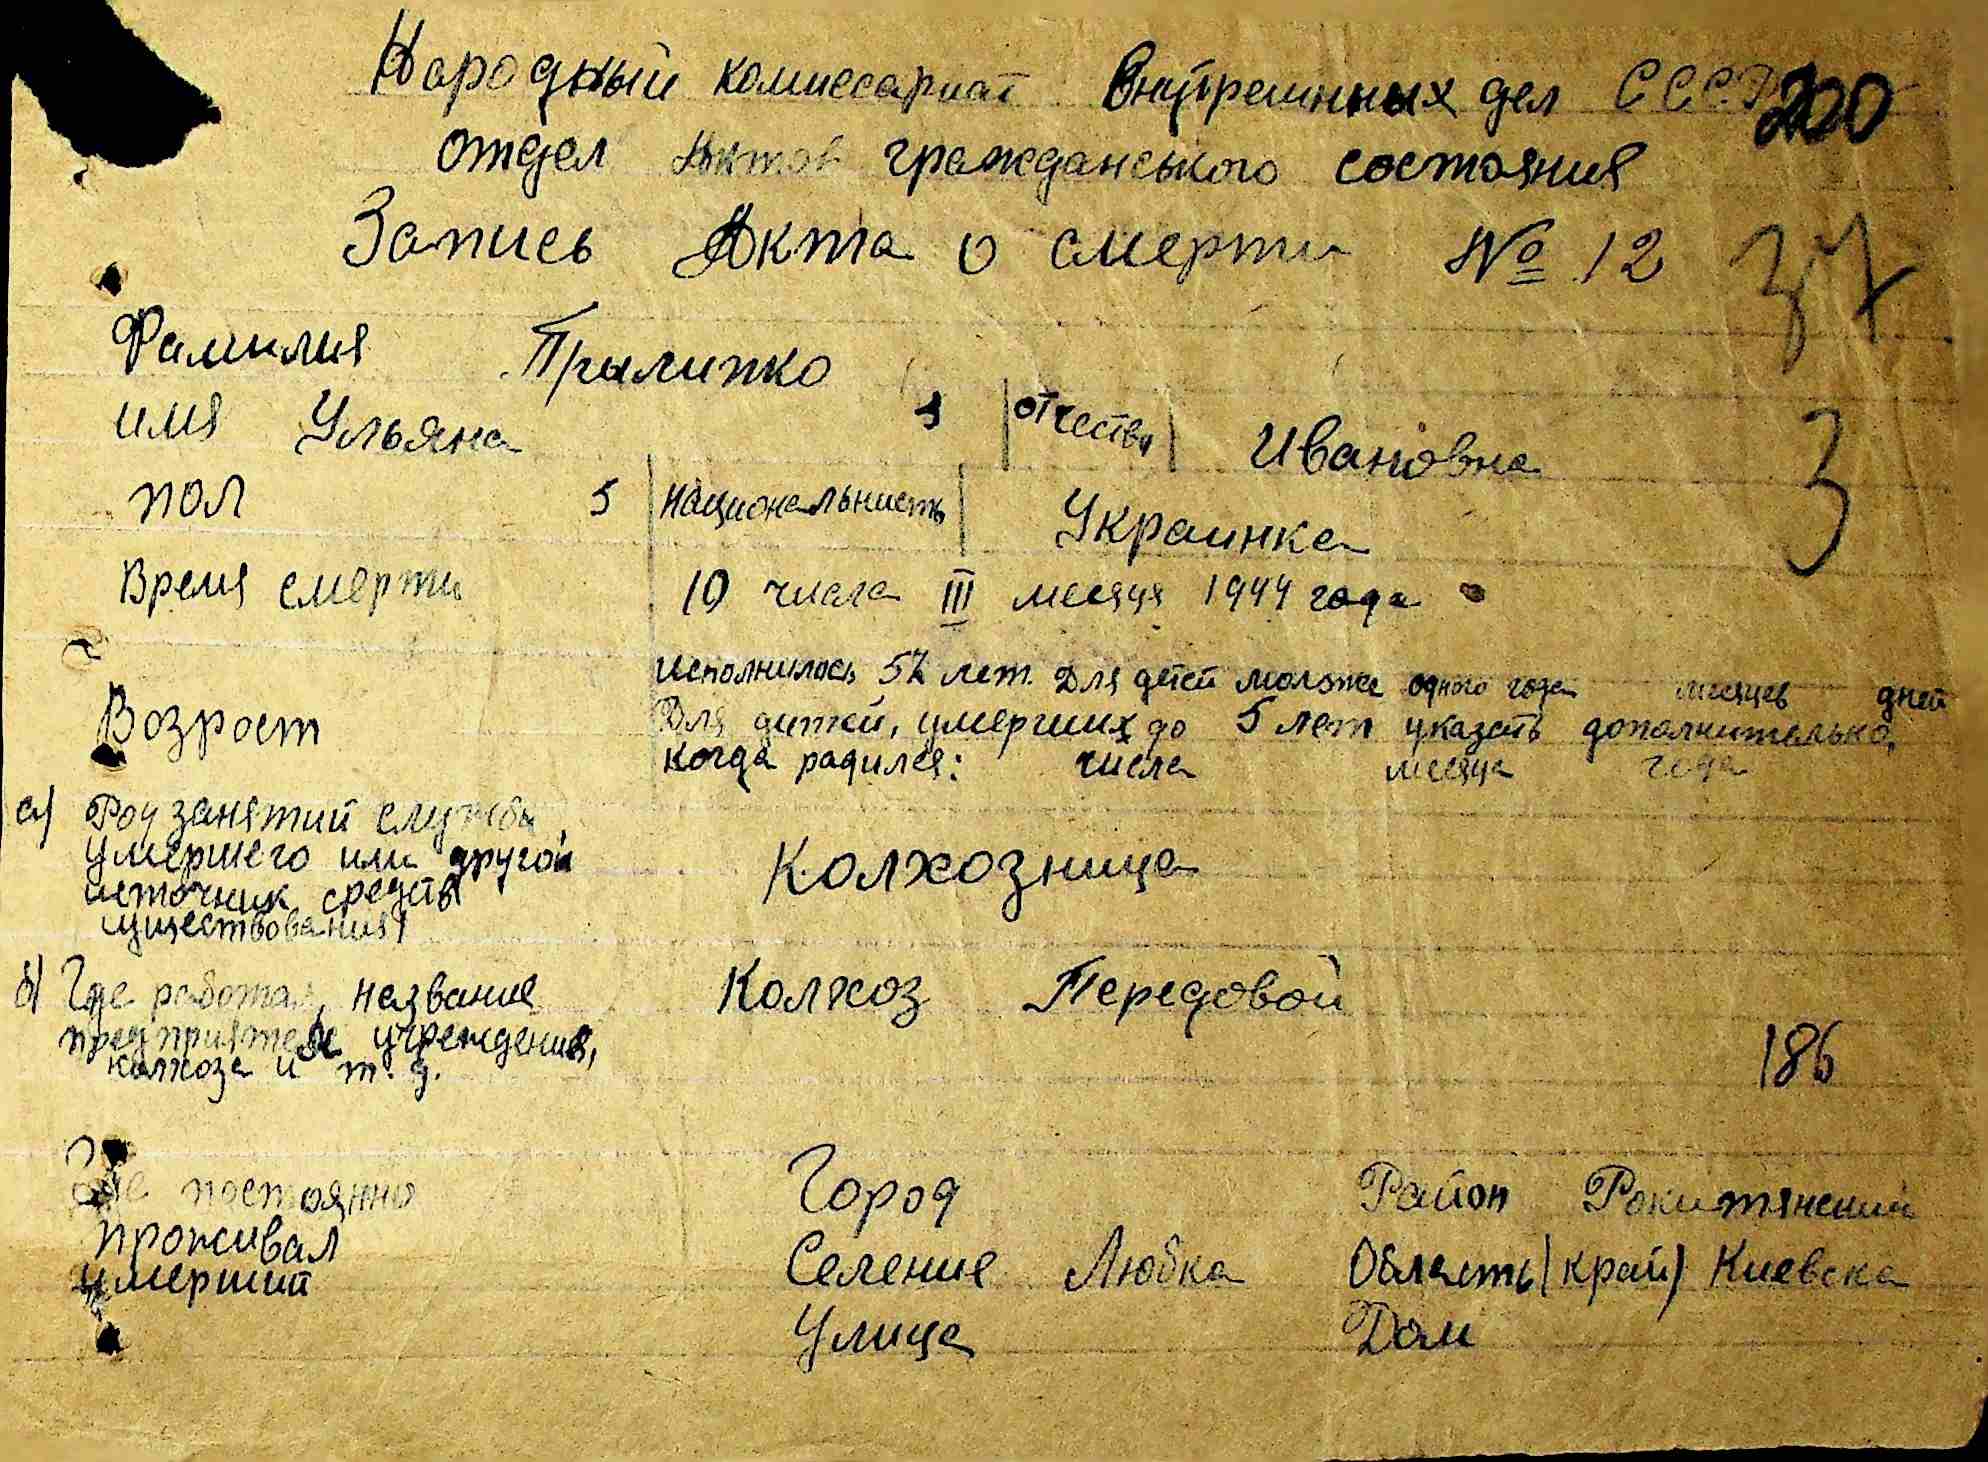 Народный комиссариат Внутреинных дел СССР 220
отдел Актов гражданського состояния
Запись Акта о смерти № 12 37
Фамилия Прылипко
имя Ульяна 3 отчество Ивановна 3
пол 5 Национальнисть Украинка
Время смерти 10 числа III месяця 1944 года
2
Исполнилось 57 лет. Для детей моложе одного года месяцев дней
Возраст Для дитей, умерших до 5 лет указать дополнительно,
когда радился: числа месяца года
а) Род занятий службы
умершего или другой Колхозница
источник средств
существования
б) Где работал, название Колхоз Передовой
предприятия учреждения,
колхоза и т. д. 186
Где постоянно Город Район Рокитянский
проживал Селение Любка Область (край) Киевска
умерший
Улица Дом